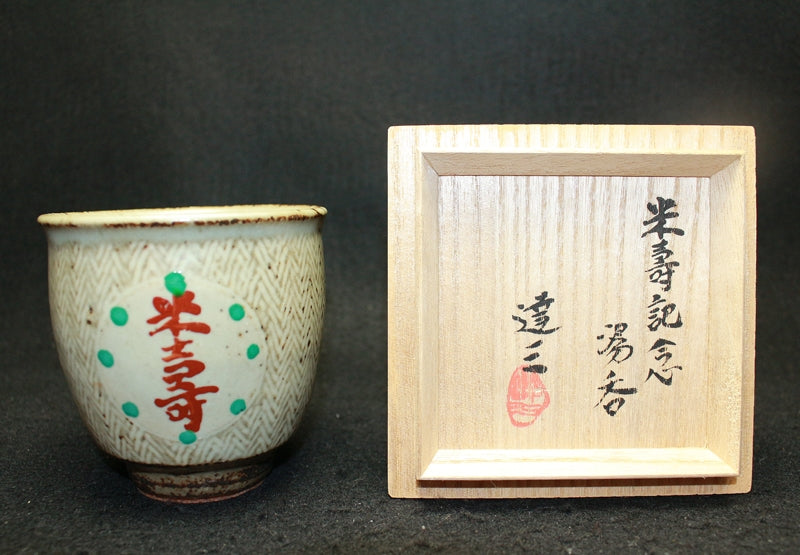 米壽
米壽記念
湯呑
達三